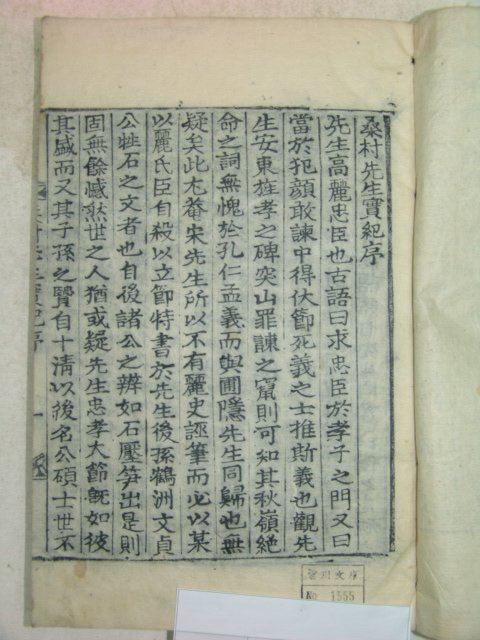 桑村先生實紀序
先生高麗忠臣也古語曰求忠臣於孝子之門又曰
當於犯顔敢諫中得伏節死義之士推斯義也觀先
生安東旌孝之碑突山罪諫之竄則可知其秋嶺絶
命之詞無愧於孔仁孟義而與圃隱先生同歸也無
疑矣此尤菴宋先生所以不有麗史誣筆而必以某
以麗氏臣自殺以立節特書於先生後孫鶴洲文貞
公牲石之文者也自後諸公之辨如石壓笋出是則
固無餘憾然世之人猶或疑先生忠孝大節旣如彼
其盛而又其子孫之賢自十淸以後名公碩士世不
先生實紀序
一
文庫
No 1555